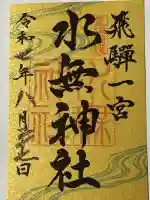 飛騨一宮
水無神社
令和 年八月二十七日